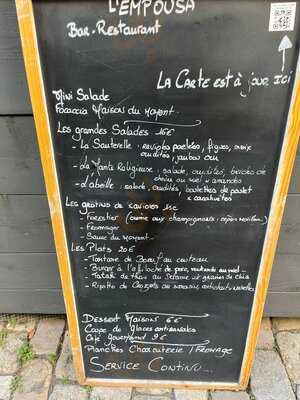 L'EMPOUSA
Bar-Restaurant
La Carte est à jour ici
Mini Salade
Focaccia Maison du moment
Les grandes Salades 16€
- La Sauterelle : ravioles poelées, figues, noix
crudités, jambon cru
- La Mante Religieuse : salade, crudités, bricks de
chèvre au miel + amandes
- L'abeille : salade, crudités, boulettes de poulet
x cacahuètes
Les gratins de ravioles 15€
- Forestier (crème aux champignons : cèpes morilles)
- Fromager
- Sauce du moment
Les Plats 20€
- Tartare de Bœuf au couteau
- Burger à l'effiloché de porc, moutarde au miel
- Tataki de thon au sésame et graines de chia
- Risotto de Crozets
Dessert Maisons 6€
Coupe de glaces artisanales
Café gourmand 9€
Planches Charcuterie / Fromage
Service Continu...